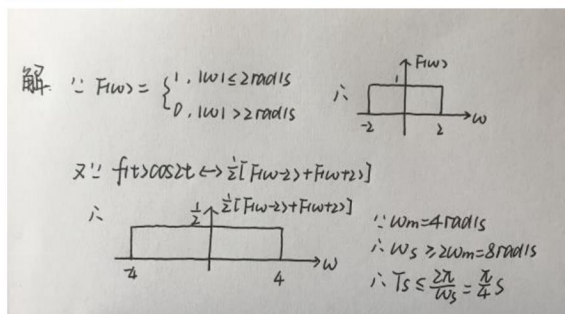 解: ∵ F(ω) = { 1, |ω| ≤ 2rad/s
0, |ω| > 2rad/s
∴
F(ω)
1
-2 2 ω
又∵ f(t)cos2t ↔ ½[F(ω-2)+F(ω+2)]
∴
½ ½[F(ω-2)+F(ω+2)]
-4 4 ω
∵ ωm=4rad/s
∴ ωs ≥ 2ωm=8rad/s
∴ Ts ≤ 2π/ωs = π/4 s